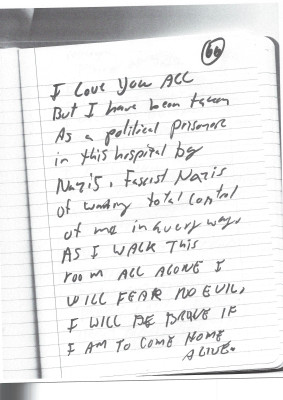 66
I Love You ALL
But I have been taken
As a political prisoner
in this hospital by
Nazi's. Fascist Nazis
of wanting total control
of me in every way.
AS I WALK THIS
room ALL ALONE I
WILL FEAR NO EVIL,
I WILL BE BRAVE IF
I AM TO COME HOME
ALIVE.